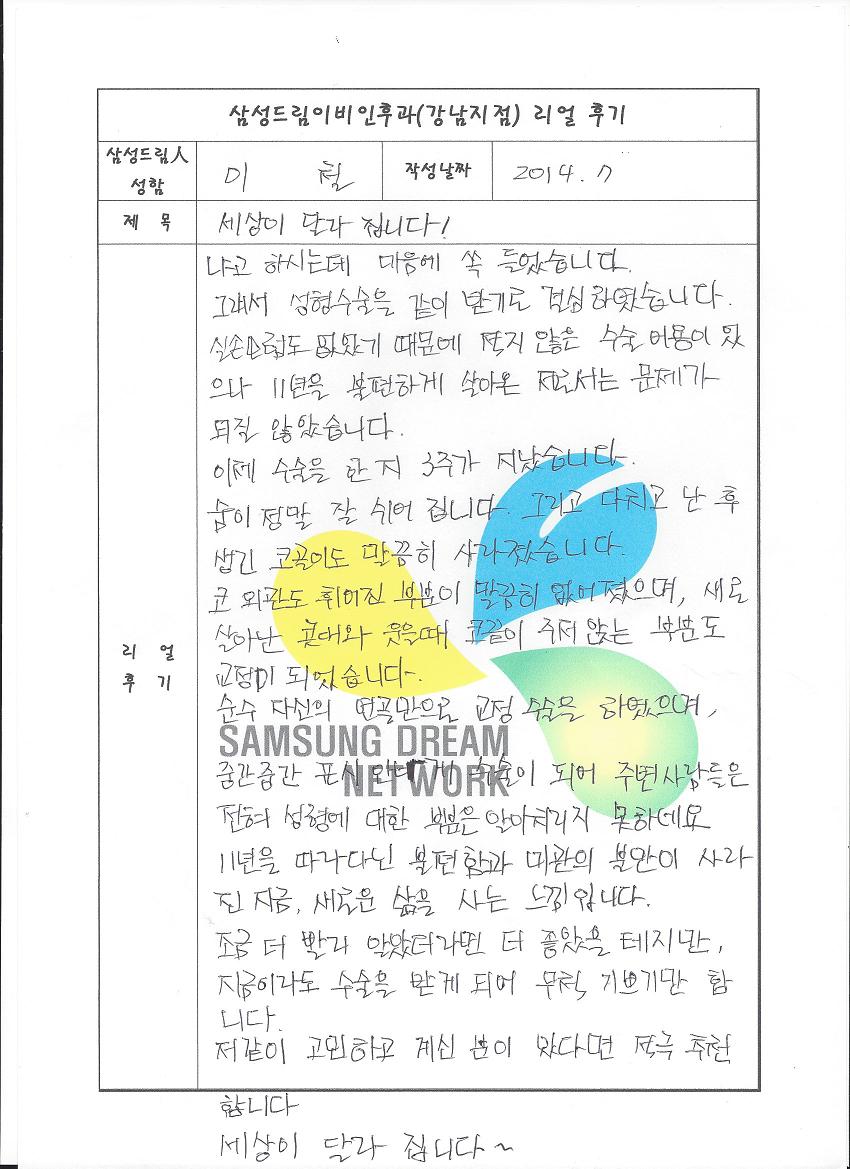 삼성드림이비인후과(강남지점) 리얼 후기
삼성드림人
성함
이 철
작성날짜
2014. 7
제 목
세상이 달라 집니다!
리 얼
후 기
냐고 하시는데 마음에 쏙 들었습니다.
그래서 성형수술을 같이 받기로 결심하였습니다.
실손보험도 없었기 때문에 적지 않은 수술 비용이 었
으나 11년을 불편하게 살아온 저로서는 문제가
되질 않았습니다.
이제 수술을 한 지 3주가 지났습니다.
숨이 정말 잘 쉬어 집니다. 그리고 다치고 난 후
생긴 코골이도 말끔히 사라졌습니다.
코 외관도 휘어진 부분이 말끔히 없어졌으며, 새로
살아난 콧대와 웃을때 코끝이 주저 앉는 부분도
교정이 되었습니다.
순수 자신의 연골만으로 교정 수술을 하였으며,
SAMSUNG DREAM
NETWORK
중간중간 표시 안나게 수술이 되어 주변사람들은
전혀 성형에 대한 부분은 알아차리지 못하데요
11년을 따라다닌 불편함과 미관의 불만이 사라
진 지금, 새로운 삶을 사는 느낌입니다.
조금 더 빨리 알았더라면 더 좋았을 테지만,
지금이라도 수술을 받게 되어 무척 기쁘기만 합
니다.
저같이 고민하고 계신 분이 있다면 적극 추천
합니다
세상이 달라 집니다~